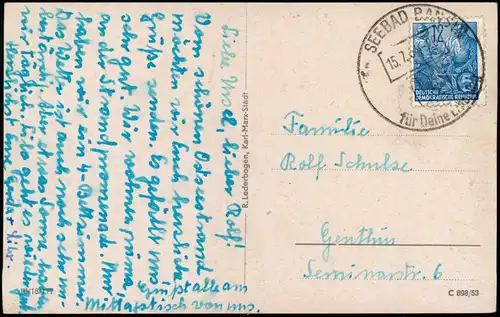 Liebe Ursel, lieber Rolf!
Vom schönen Ostseestrand
möchten wir Euch herzliche
Grüße senden. Es gefällt uns
sehr gut. Wir wohnen prima,
an der Strandpromenade. Nur
haben wir ein 4 Bettzimmer.
Das Wetter ist auch noch sehr un-
beständig. Aber etwas Sonne haben
wir täglich.
Herzlichst Eure
Grüßt alle am
Mittagstisch von uns.
R. Lederbogen, Karl-Marx-Stadt
SEEBAD BANSIN
15.7.
12
für Deine
DEUTSCHE
DEMOKRATISCHE REPUBLIK
Familie
Rolf Schulze
Genthin
Seminarstr. 6
C 898/53